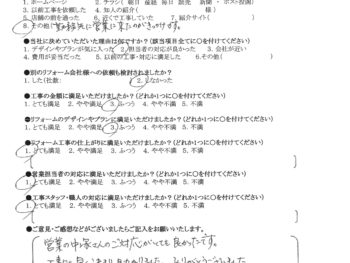 1. ホームページ 2. チラシ( 朝日 産経 毎日 読売 新聞 ・ ポスト投函)
3. 以前工事を依頼した 4. 知人の紹介( 様 )
5. 店舗の前を通った 6. 近くで工事していた 7. 紹介サイト( )
8. その他(
●当社に決めていただいた理由は何ですか？(該当項目全てに○を付けてください)
1. デザインやプランが気に入った 2. 担当者の対応が良かった 3. 会社が近い
4. 費用が妥当だった 5. 以前の工事・対応に満足した 6. その他( )
●別のリフォーム会社様への依頼も検討されましたか？
1. した(社数 ) 2. しなかった
●工事の金額に満足いただけましたか？(どれか1つに○を付けてください)
1. とても満足 2. やや満足 3. ふつう 4. やや不満 5. 不満
●リフォームのデザインやプランに満足いただけましたか？(どれか1つに○を付けてください)
1. とても満足 2. やや満足 3. ふつう 4. やや不満 5. 不満
●リフォーム工事の仕上がりに満足いただけましたか？(どれか1つに○を付けてください)
1. とても満足 2. やや満足 3. ふつう 4. やや不満 5. 不満
●営業担当者の対応に満足いただけましたか？(どれか1つに○を付けてください)
1. とても満足 2. やや満足 3. ふつう 4. やや不満 5. 不満
●工事スタッフ・職人の対応に満足いただけましたか？(どれか1つに○を付けてください)
1. とても満足 2. やや満足 3. ふつう 4. やや不満 5. 不満
●ご意見・ご感想などがございましたらご記入をお願いいたします。
営業の中塚さんのご対応がとても良かったです。